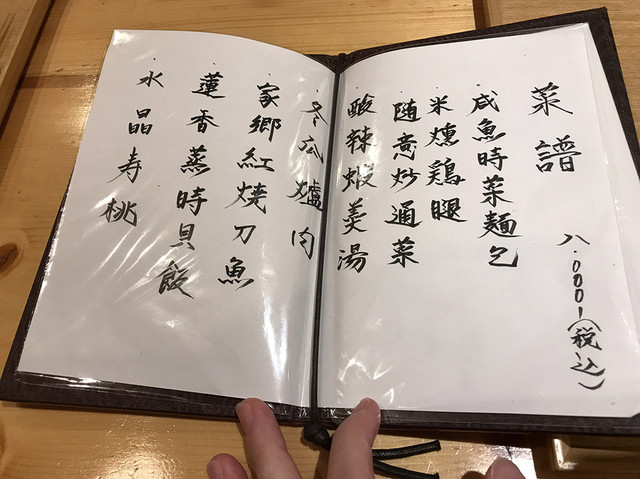 菜譜
八.000-(税込)
・咸魚時菜麺包
・米燻鶏腿
・随意炒通菜
・酸辣蝦羹湯
・冬瓜爐肉
・家郷紅焼刀魚
・蓮香蒸時貝飯
・水晶寿桃